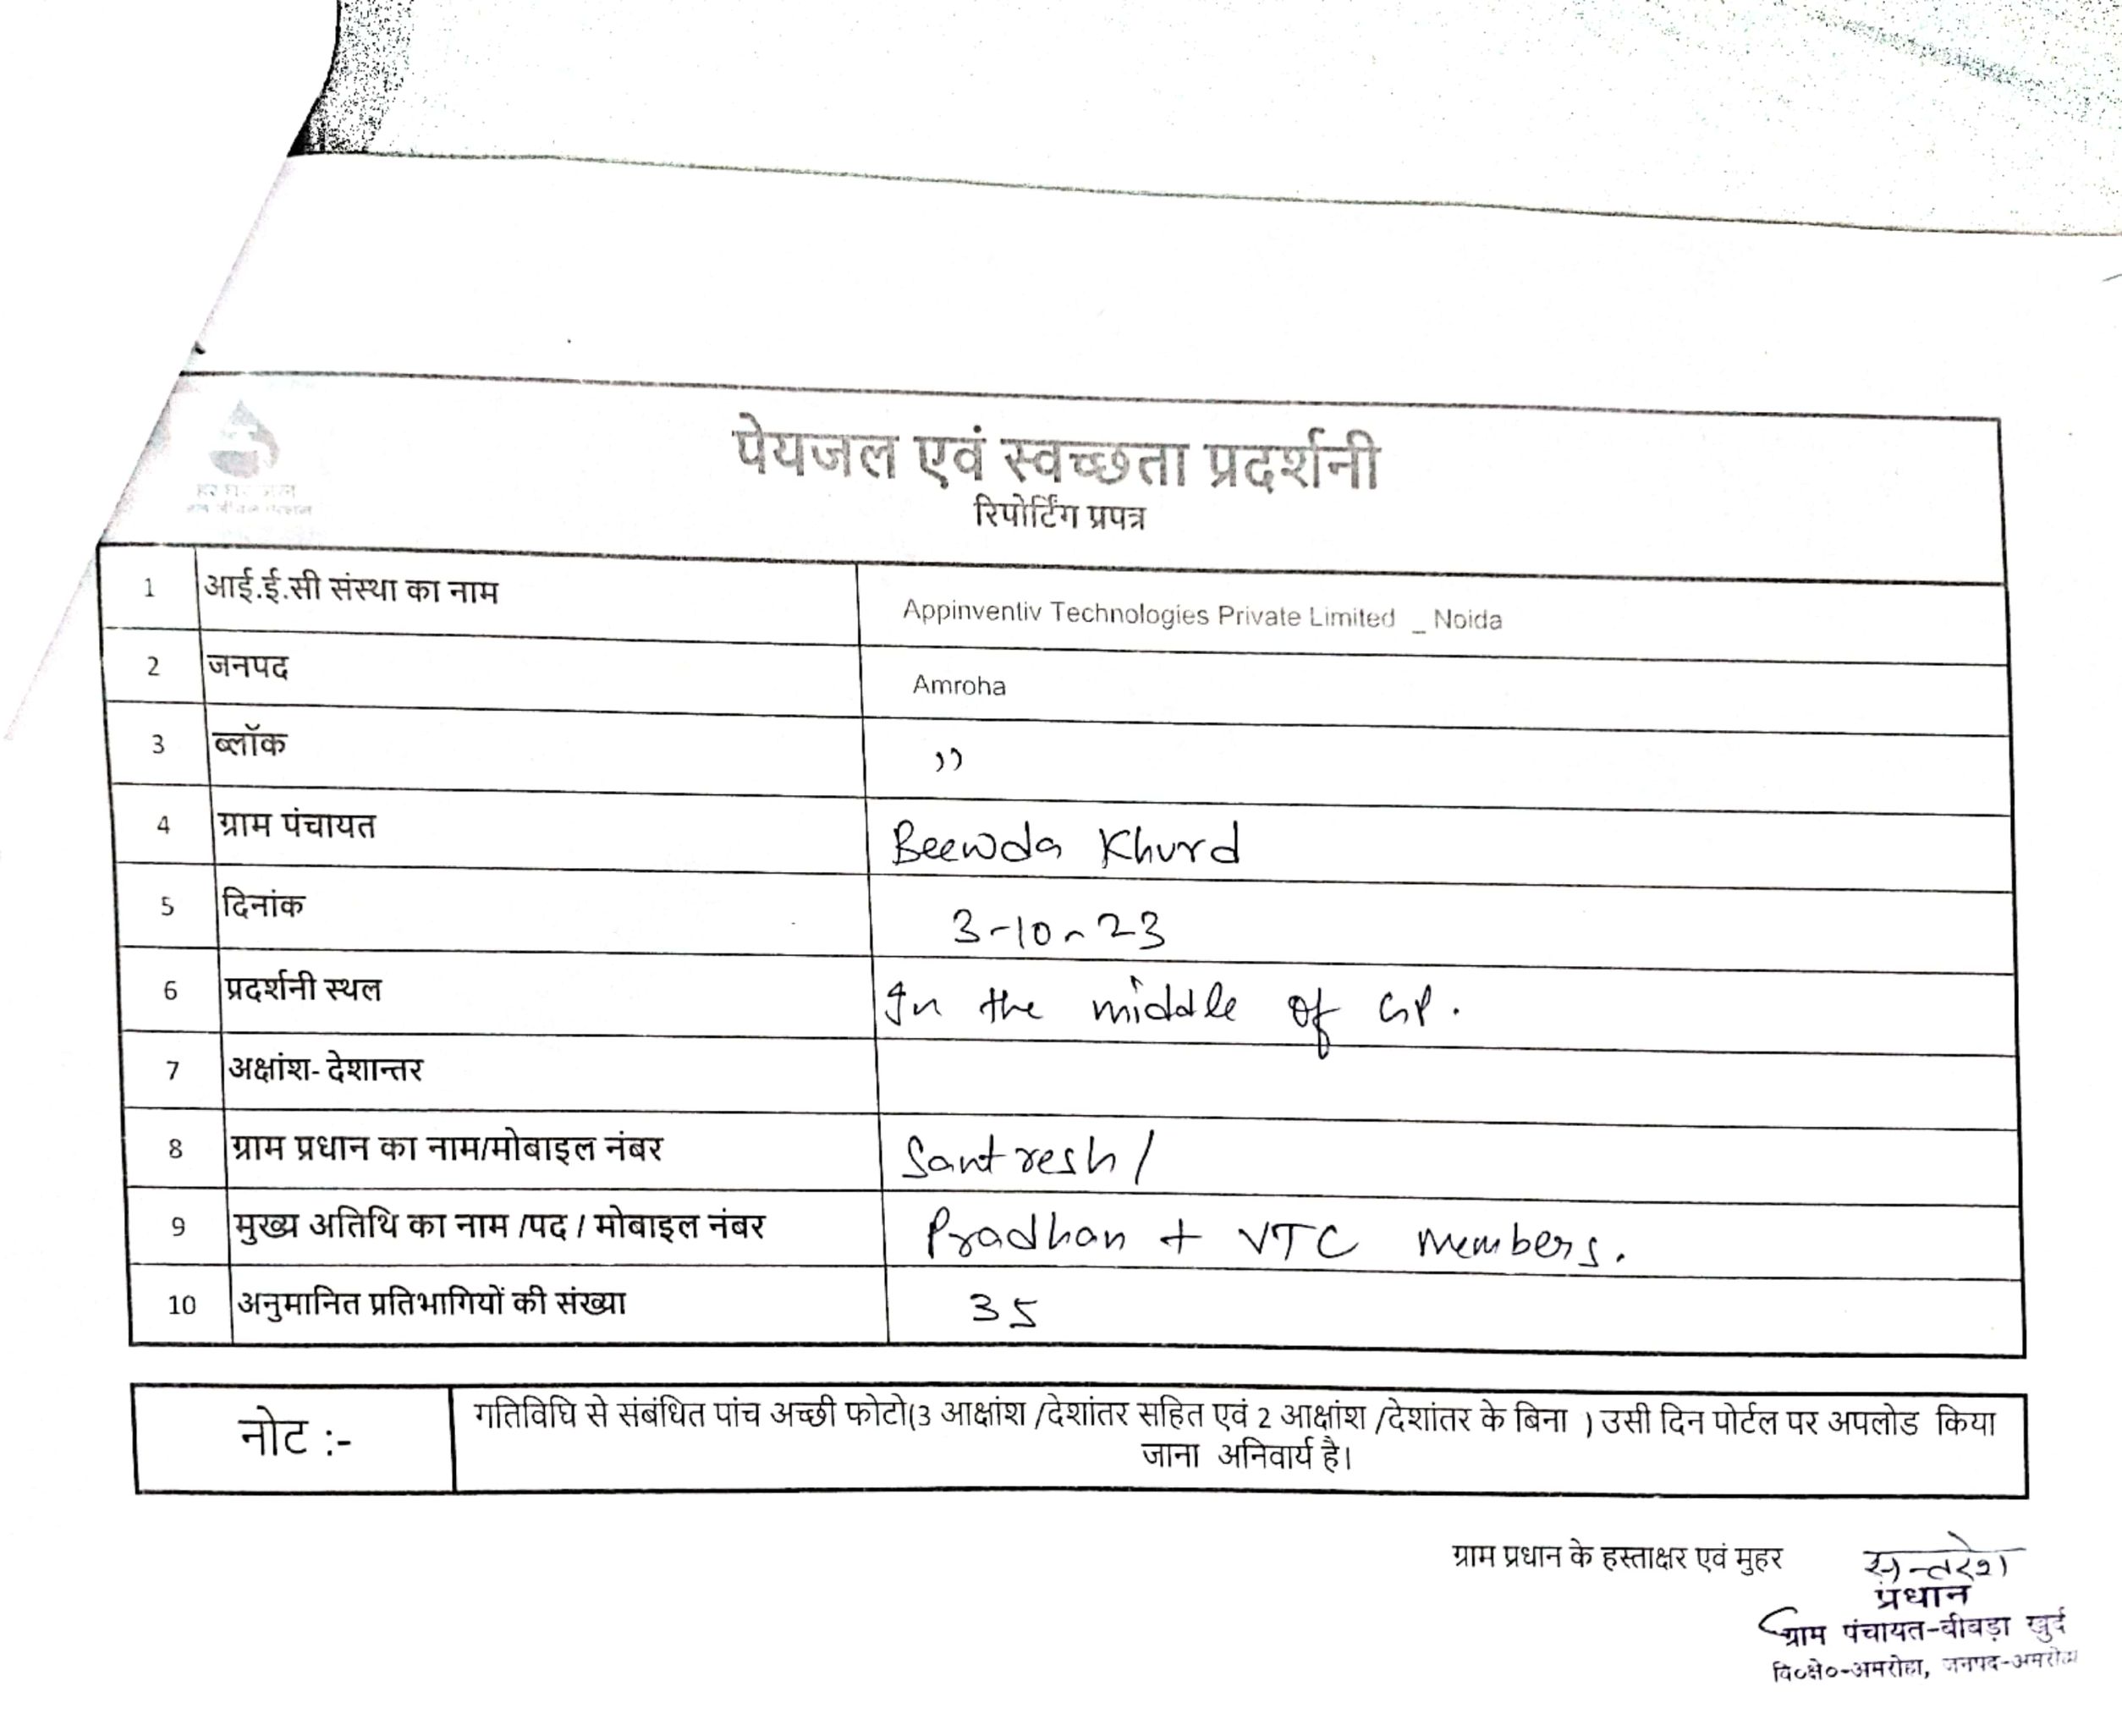 हर घर जल
पेयजल एवं स्वच्छता प्रदर्शनी
रिपोर्टिंग प्रपत्र
1 आई.ई.सी संस्था का नाम Appinventiv Technologies Private Limited _ Noida
2 जनपद Amroha
3 ब्लॉक ,,
4 ग्राम पंचायत Beewda Khurd
5 दिनांक 3-10-23
6 प्रदर्शनी स्थल In the middle of GP.
7 अक्षांश- देशान्तर
8 ग्राम प्रधान का नाम/मोबाइल नंबर Santresh /
9 मुख्य अतिथि का नाम /पद / मोबाइल नंबर Pradhan + VTC members.
10 अनुमानित प्रतिभागियों की संख्या 35
नोट :- गतिविधि से संबंधित पांच अच्छी फोटो(3 आक्षांश /देशांतर सहित एवं 2 आक्षांश /देशांतर के बिना ) उसी दिन पोर्टल पर अपलोड किया
जाना अनिवार्य है।
ग्राम प्रधान के हस्ताक्षर एवं मुहर सन्तरेश
प्रधान
ग्राम पंचायत-बीबड़ा खुर्द
वि०क्षे०-अमरोहा, जनपद-अमरोहा